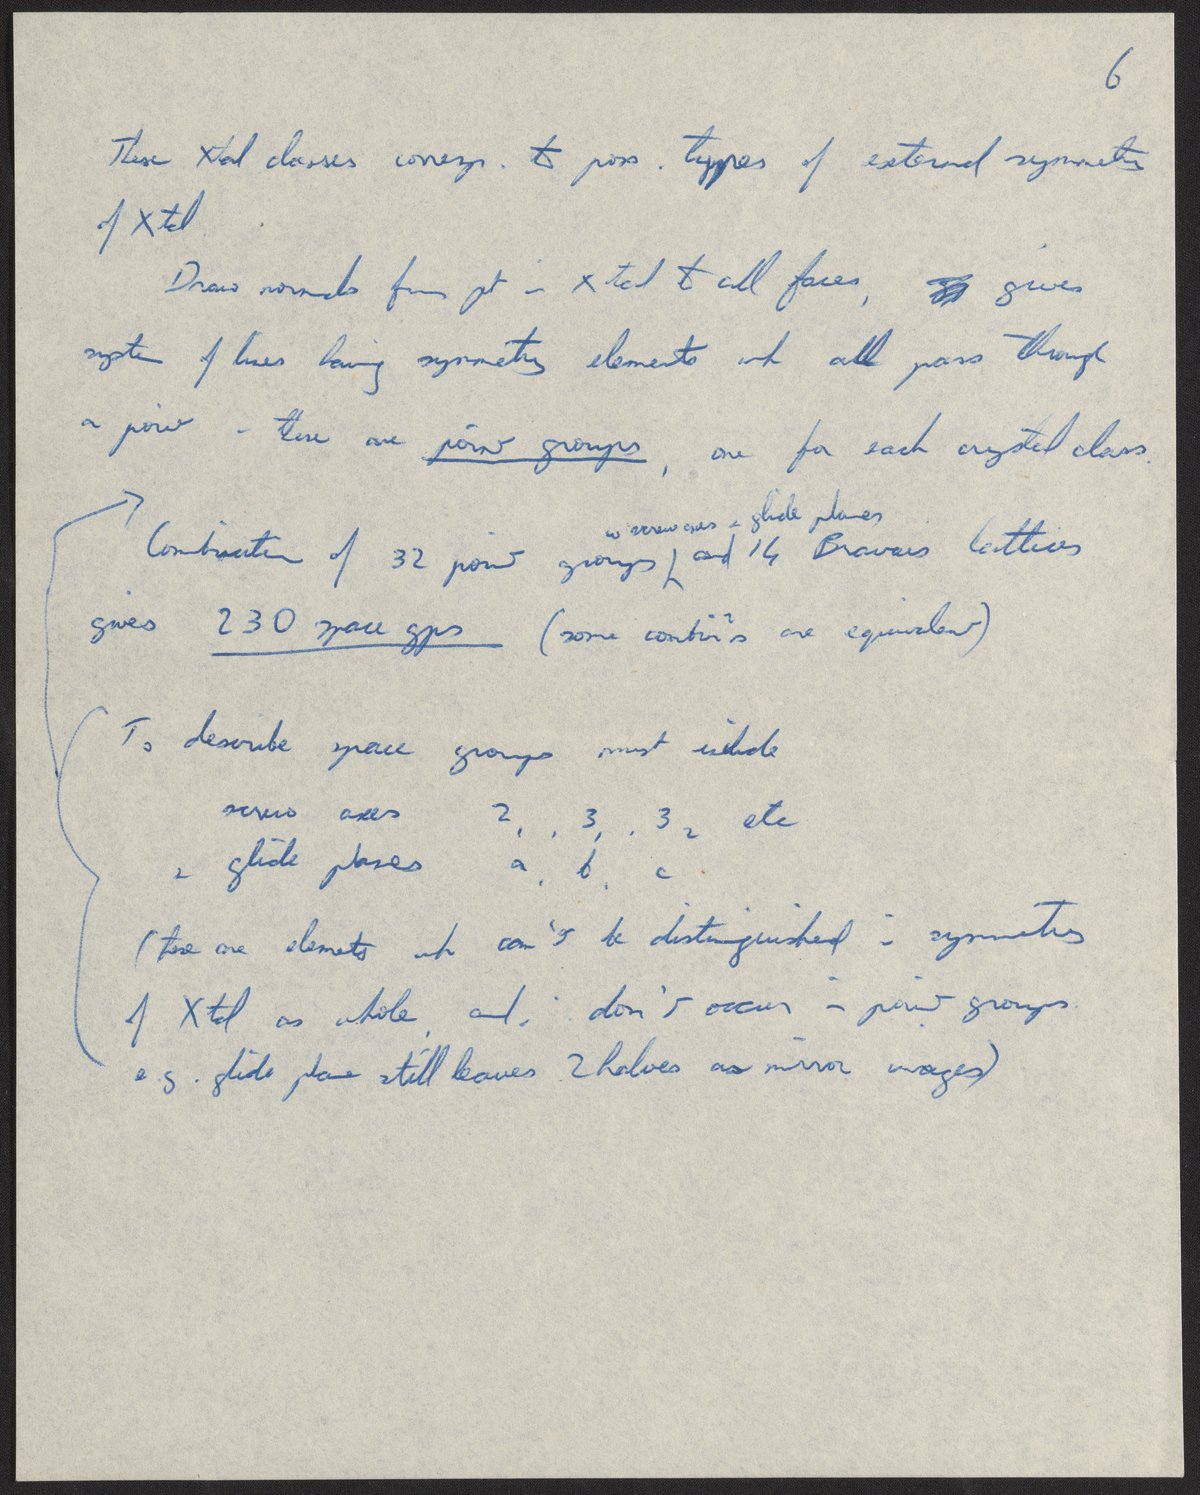 6
These Xtal classes corresp. to poss. types of external symmetry
of Xtal
Draw normals from pt in Xtal to all faces, gives
system of lines having symmetry elements wh all pass through
a point - these are point groups, one for each crystal class.
w screw axes & glide planes
Combination of 32 point groups, and 14 Bravais lattices
gives 230 space gps (some combins are equivalent)
To describe space groups must include
screw axes 2₁, 3₁, 3₂ etc
& glide planes a, b, c
(these are elements wh can't be distinguished in symmetry
of Xtal as whole, and ∴ don't occur in point groups.
e.g. glide plane still leaves 2 halves as mirror images)